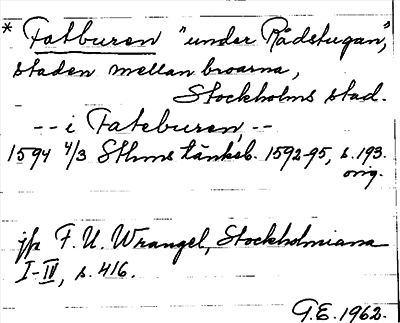 * Fatburen "under Rådstugan,"
staden mellan broarna,
Stockholms stad.
-- i Fateburen, --
1594 4/3 Sthms tänkeb. 1592-95, s. 193.
orig.
jfr F. U. Wrangel, Stockholmiana
I-IV, s. 416.
G.E. 1962.